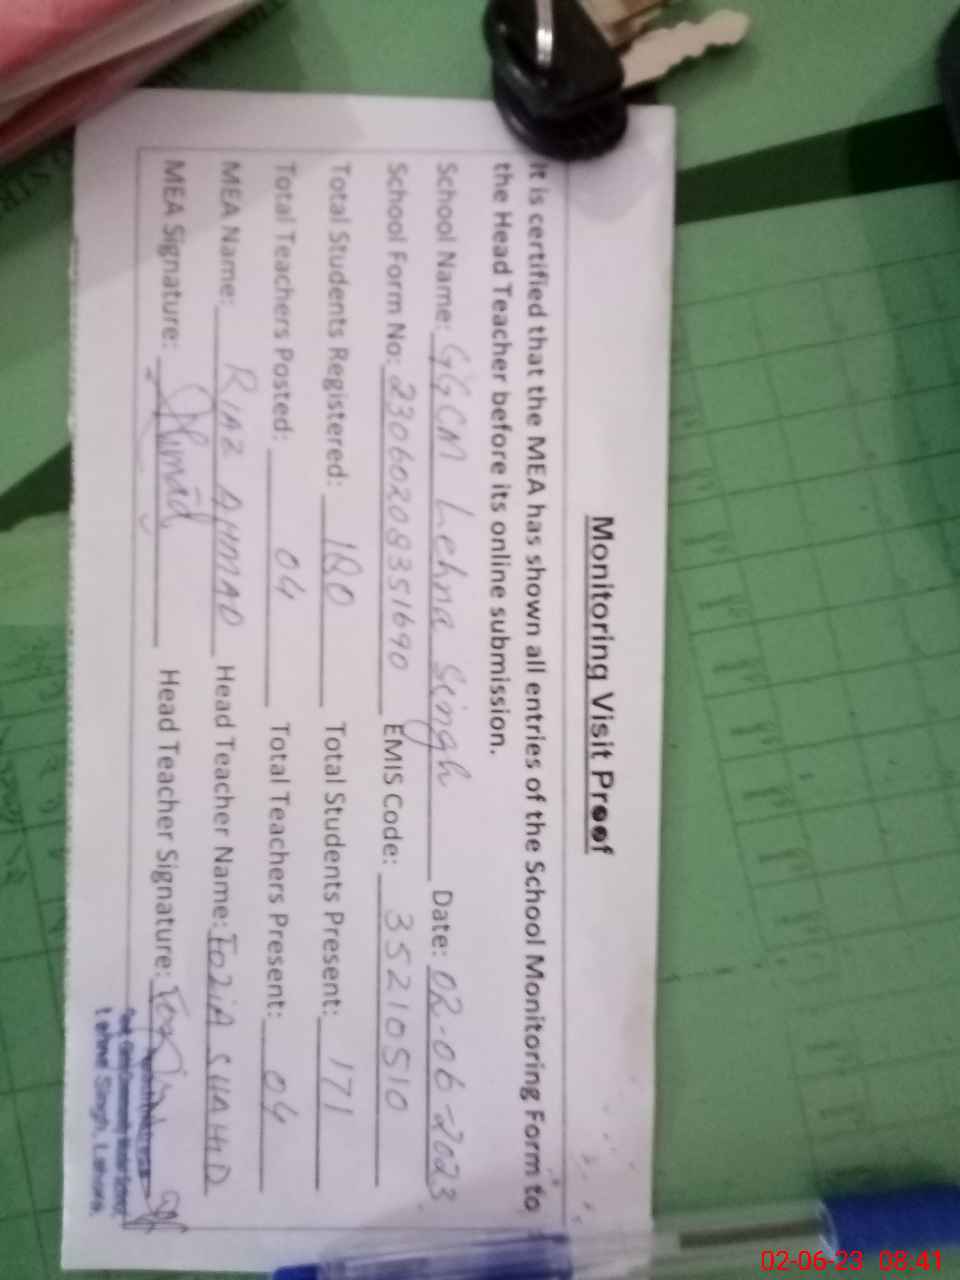 Monitoring Visit Proof
It is certified that the MEA has shown all entries of the School Monitoring Form to
the Head Teacher before its online submission.
School Name: GGCM Lehna Singh Date: 02-06-2023
School Form No: 23060208351690 EMIS Code: 35210510
Total Students Registered: 180 Total Students Present: 171
Total Teachers Posted: 04 Total Teachers Present: 04
MEA Name: RIAZ AHMAD Head Teacher Name: FOZIA SHAHID
MEA Signature: Head Teacher Signature:
Lehna Singh, Lahore.
02-06-23 08:41